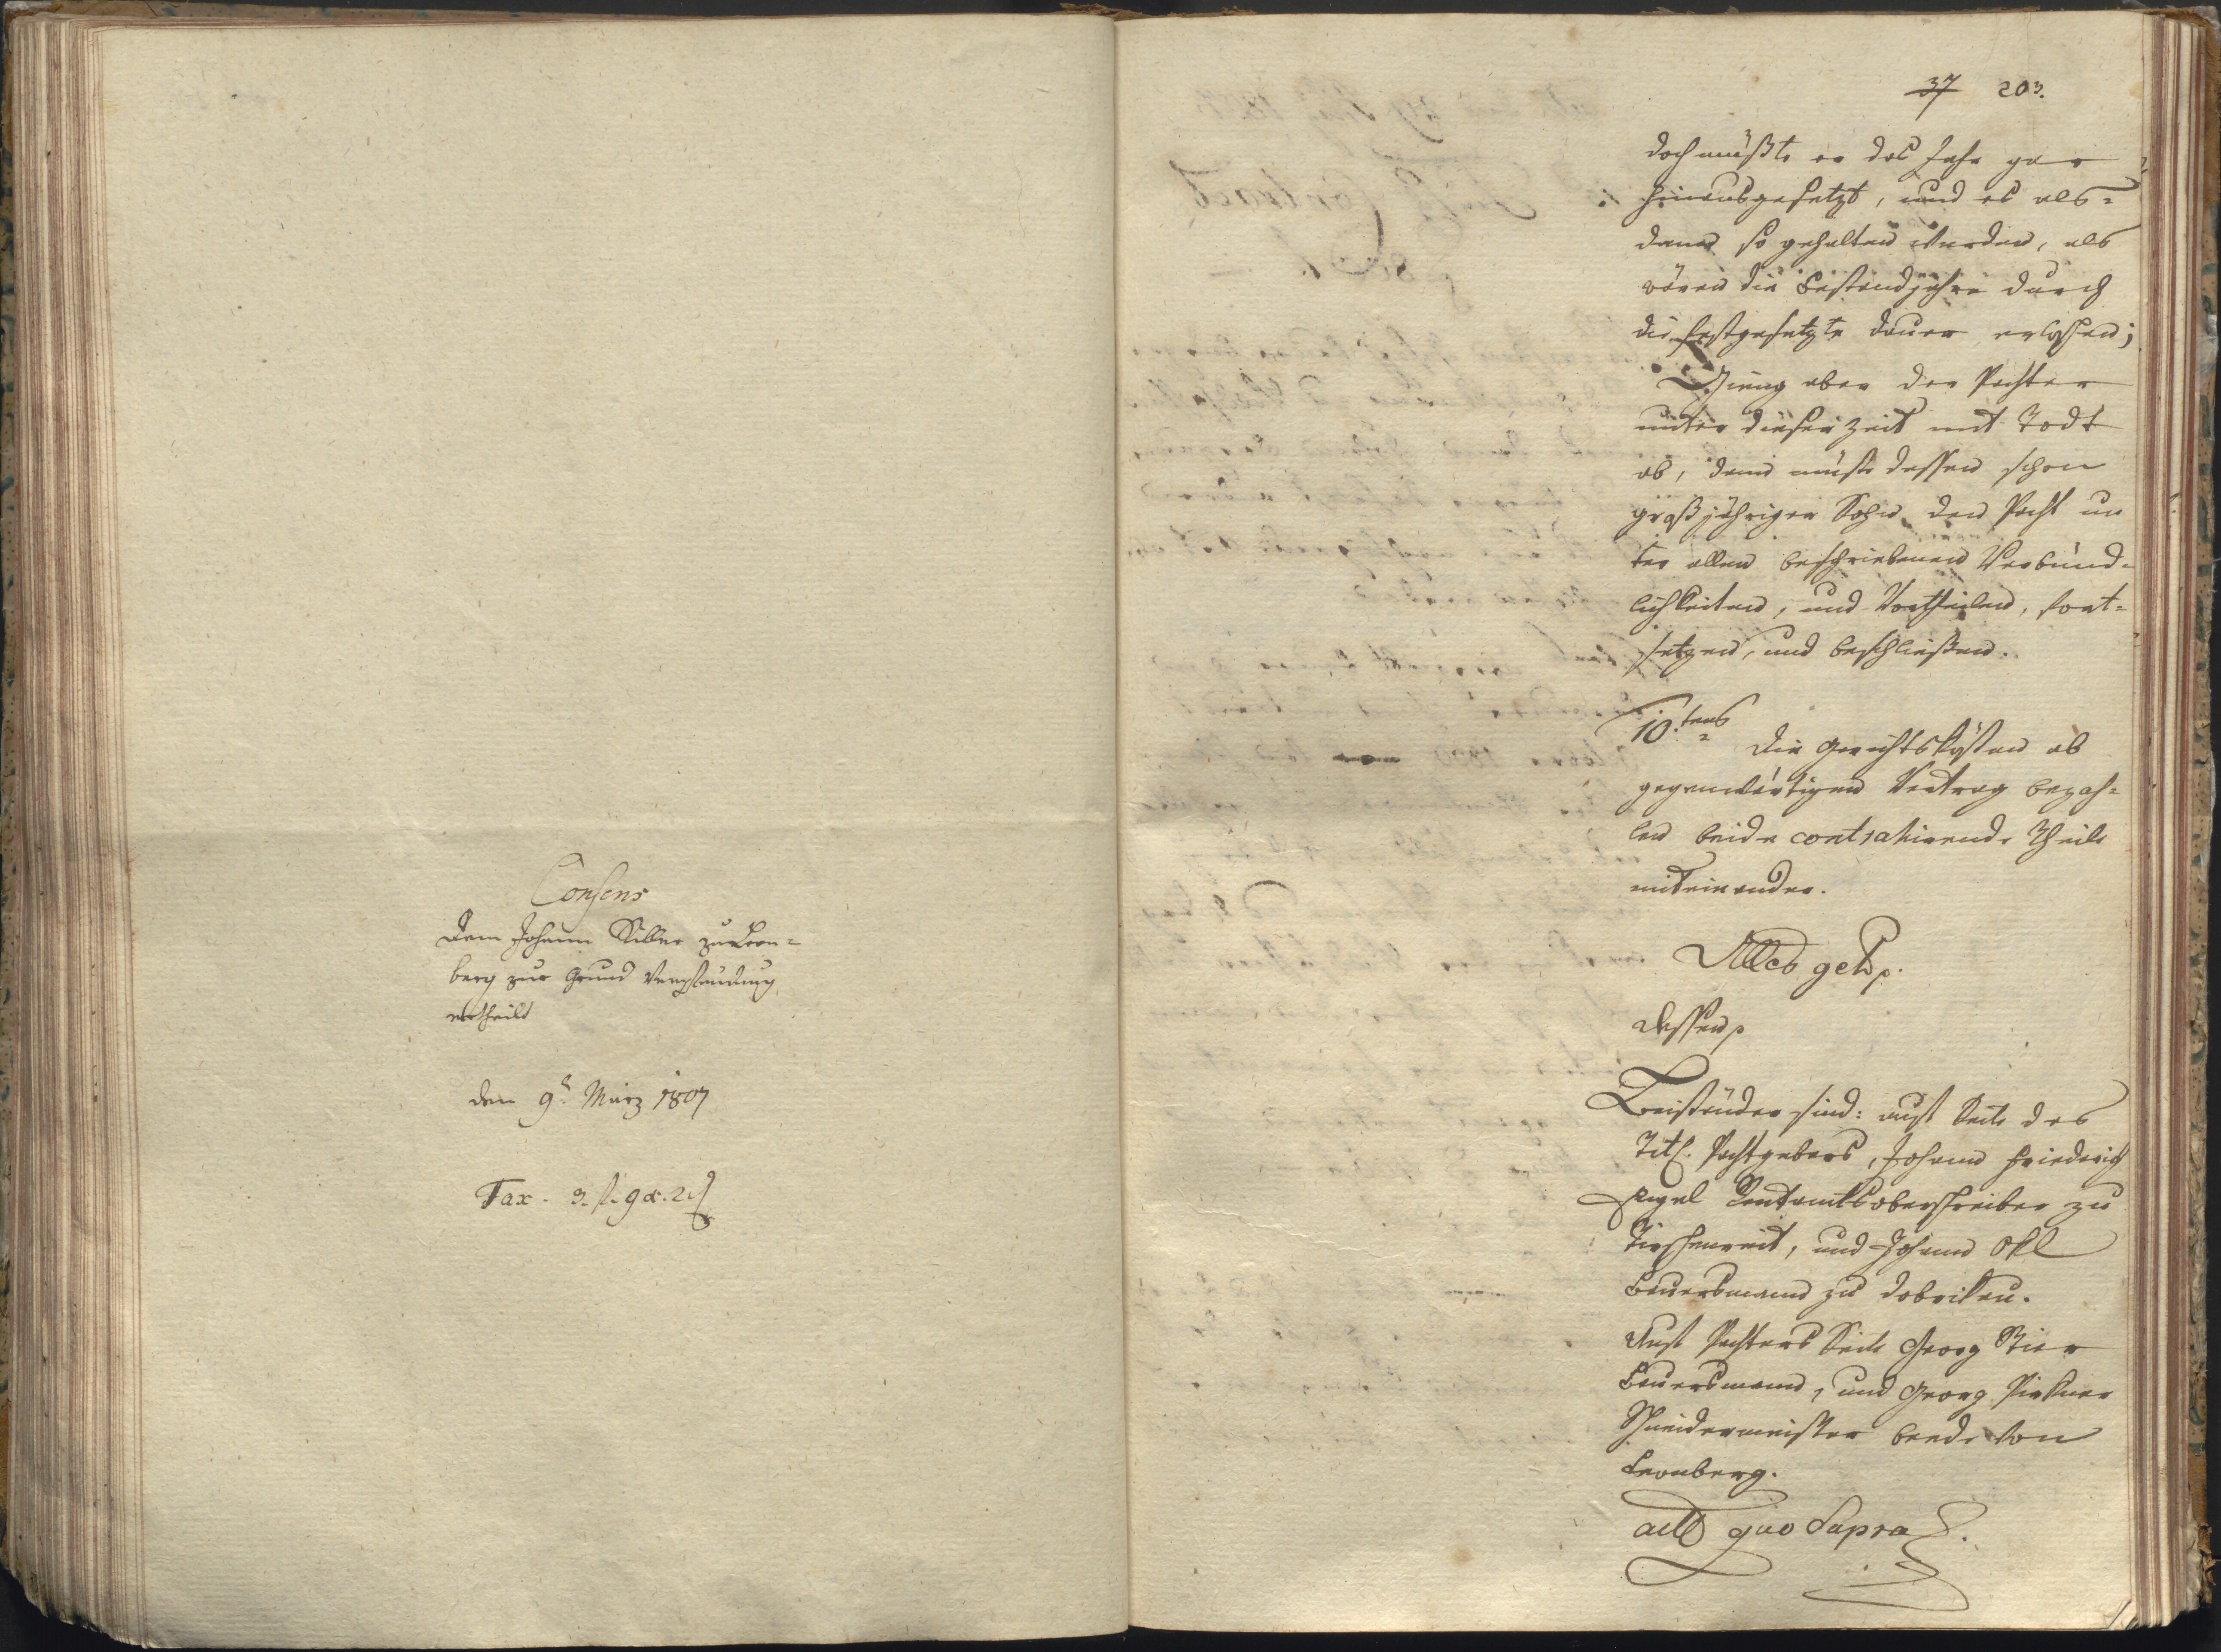 Consens
Dem Johann Käller zu Leon=
berg zur Grund Verpfändung
ertheilt
den 9t. März 1807
Tax. 3 f. 9 x. 2 d
37 203.
doch müßte er das Jahr gar
hinausgesetzt, und es als=
dann so gehalten werden, als
wären die Bestandjahre durch
die festgesetzte Dauer erloschen;
Gieng aber der Pachter
unter dieser Zeit mit Todt
ab, dann müste dessen schon
großjähriger Sohn den Pacht un
ter allen beschriebenen Verbünd=
lichkeiten, und Vortheilen, fort=
setzen, und beschließen.
10.tens Die Gerichtskösten ab
gegenwärtigen Vertrag bezah=
len beide contrahirende Theile
miteinander.
Alles getr.
dessen
Beiständer sind: auf Seite des
Titl. Pachtgebers, Johann Friederich
Rentamtsoberschreiber zu
Tirschenreit, und Johann
Bauersmann zu Dobrikau.
Auf Pachters Seite Georg Bier
Bauersmann, und Georg Pirkner
Schneidermeister beede von
Leonberg.
actū quo Supra.